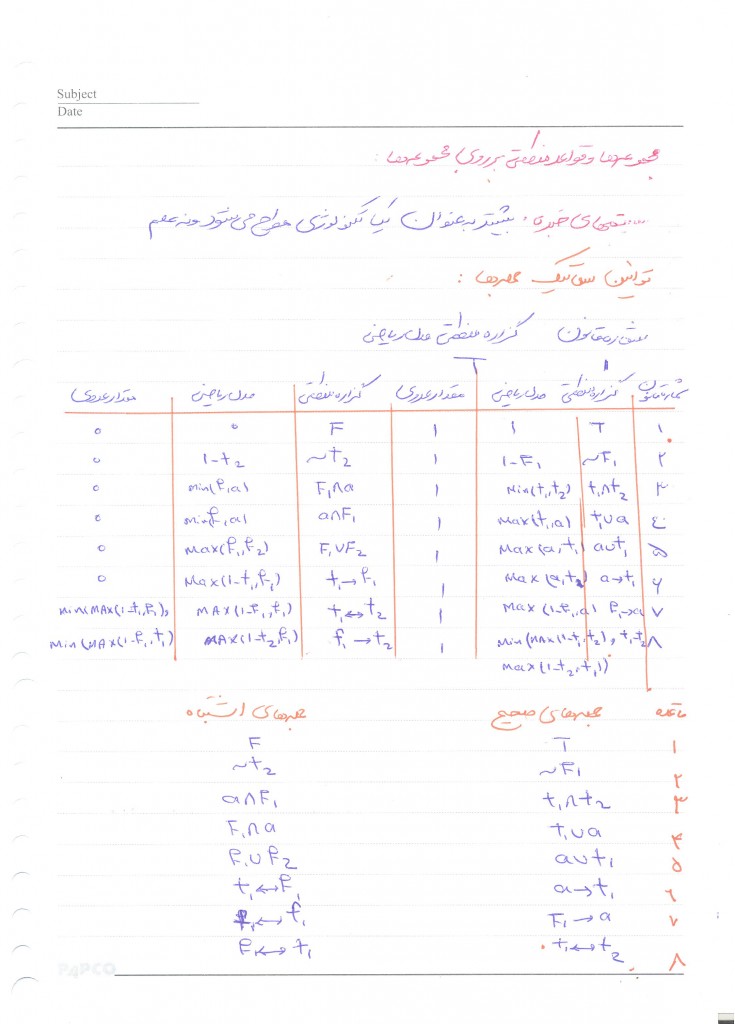 Subject
Date
مجموعه‌ها و قواعد منطقی بر روی مجموعه‌ها :
سیستمهای خبره : بیشتر به عنوان یک تکنولوژی مطرح می شود و نه علم
قوانین سمانتیک جمله‌ها :
شماره قانون گزاره منطقی مدل ریاضی
شماره قانون گزاره منطقی مدل ریاضی مقدار عددی گزاره منطقی مدل ریاضی مقدار عددی
۱ T ۱ ۱ F ۰ ۰
۲ ~F₁ 1-F₁ ۱ ~t₂ 1-t₂ ۰
۳ t₁∩t₂ Min(t₁,t₂) ۱ F₁∩a min(f₁,a) ۰
٤ t₁∪a Max(t₁,a) ۱ a∩F₁ min(f₁,a) ۰
۵ a∪t₁ Max(a,t₁) ۱ F₁∪F₂ Max(f₁,f₂) ۰
۶ a→t₁ Max(a,t₂) ۱ t₁→f₁ Max(1-t₁,f₁) ۰
۷ f₁→a Max(1-f₁,a) ۱ t₁↔t₂ MAX(1-f₁,f₁) Min(MAX(1-t₁,f₁),
۸ t₁-t₂ Min(MAX(1-t₁,t₂), ۱ f₁→t₂ MAX(1-t₂,f₁) Min(MAX(1-f₁,t₁)
Max(1-t₂,t₁)
قاعده جمله‌های صحیح جمله‌های اشتباه
۱ T F
۲ ~F₁ ~t₂
۳ t₁∩t₂ a∩F₁
۴ t₁∪a F₁∩a
۵ a∪t₁ f₁∪f₂
۶ a→t₁ t₁↔f₁
۷ F₁→a t₁↔f₁
۸ t₁↔t₂ f₁↔t₁
PAPCO